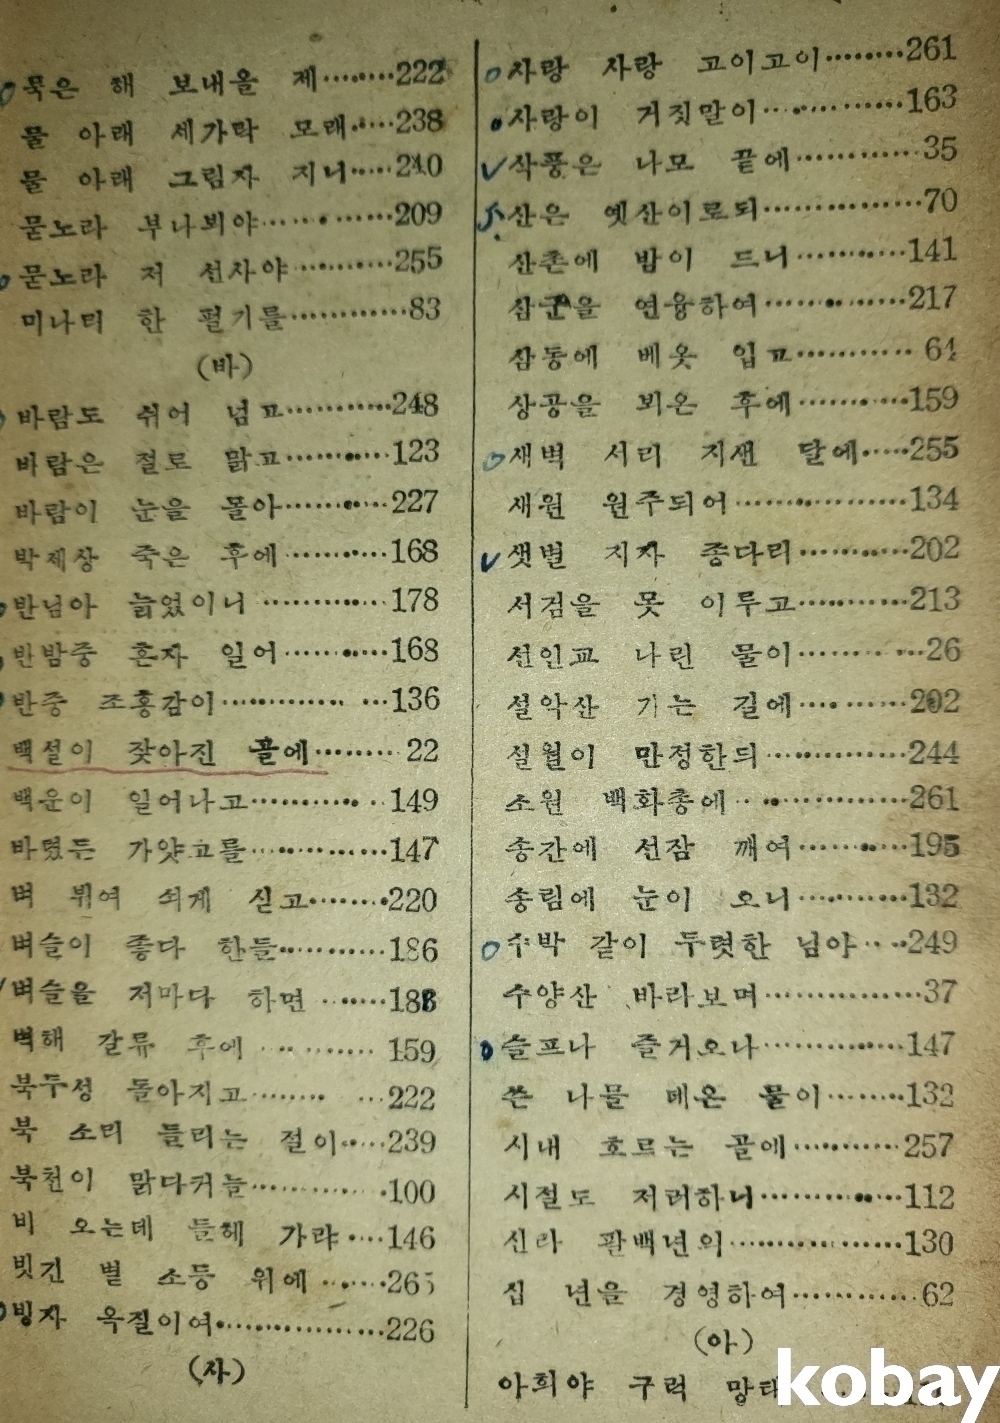 묵은 해 보내올 제………222
물 아래 세가락 모래……238
물 아래 그림자 지니……240
묻노라 부나뷔야…………209
묻노라 저 선사야…………255
미나리 한 펄기를…………83
(바)
바람도 쉬어 넘고…………248
바람은 절로 맑고…………123
바람이 눈을 몰아…………227
박제상 죽은 후에…………168
반님아 늙었이니…………178
반밤중 혼자 일어…………168
반중 조홍감이……………136
백설이 잦아진 골에………22
백운이 일어나고…………149
바렸든 가얏고를…………147
벼 뷔여 쇠게 싣고………220
벼슬이 좋다 한들…………186
벼슬을 저마다 하면………188
벽해 갈류 후에……………159
북두성 돌아지고…………222
북 소리 들리는 절이……239
북천이 맑다커늘…………100
비 오는데 들헤 가랴……146
빗긴 별 소등 위에………265
빙자 옥질이여……………226
(사)
사랑 사랑 고이고이………261
사랑이 거짓말이…………163
삭풍은 나모 끝에…………35
산은 옛산이로되…………70
산촌에 밤이 드니…………141
삼군을 연융하여…………217
삼동에 베옷 입고…………64
상공을 뵈온 후에…………159
새벽 서리 지샌 달에……255
새원 원주되어……………134
샛별 지자 종다리…………202
서검을 못 이루고…………213
선인교 나린 물이…………26
설악산 가는 길에…………202
설월이 만정한듸…………244
소원 백화총에……………261
송간에 선잠 깨여…………195
송림에 눈이 오니…………132
수박 같이 두렷한 님아…249
수양산 바라보며…………37
슬프나 즐거오나…………147
쓴 나물 데온 물이………132
시내 흐르는 골에…………257
시절도 저러하니…………112
신라 팔백년의……………130
십 년을 경영하여…………62
(아)
아희야 구럭 망태
kobay